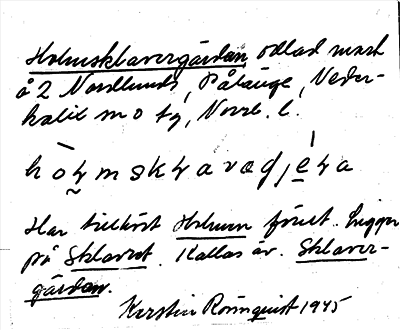 Holmsklavergärdan, odlad mark
å 2 Nordlunds, Pålänge, Neder-
kalix m o tg, Norrb. l.
Har tillhört Holmen förut. Ligger
på Sklavret. Kallas äv. Sklaver-
gärdan.
Kerstin Rönnquist 1945